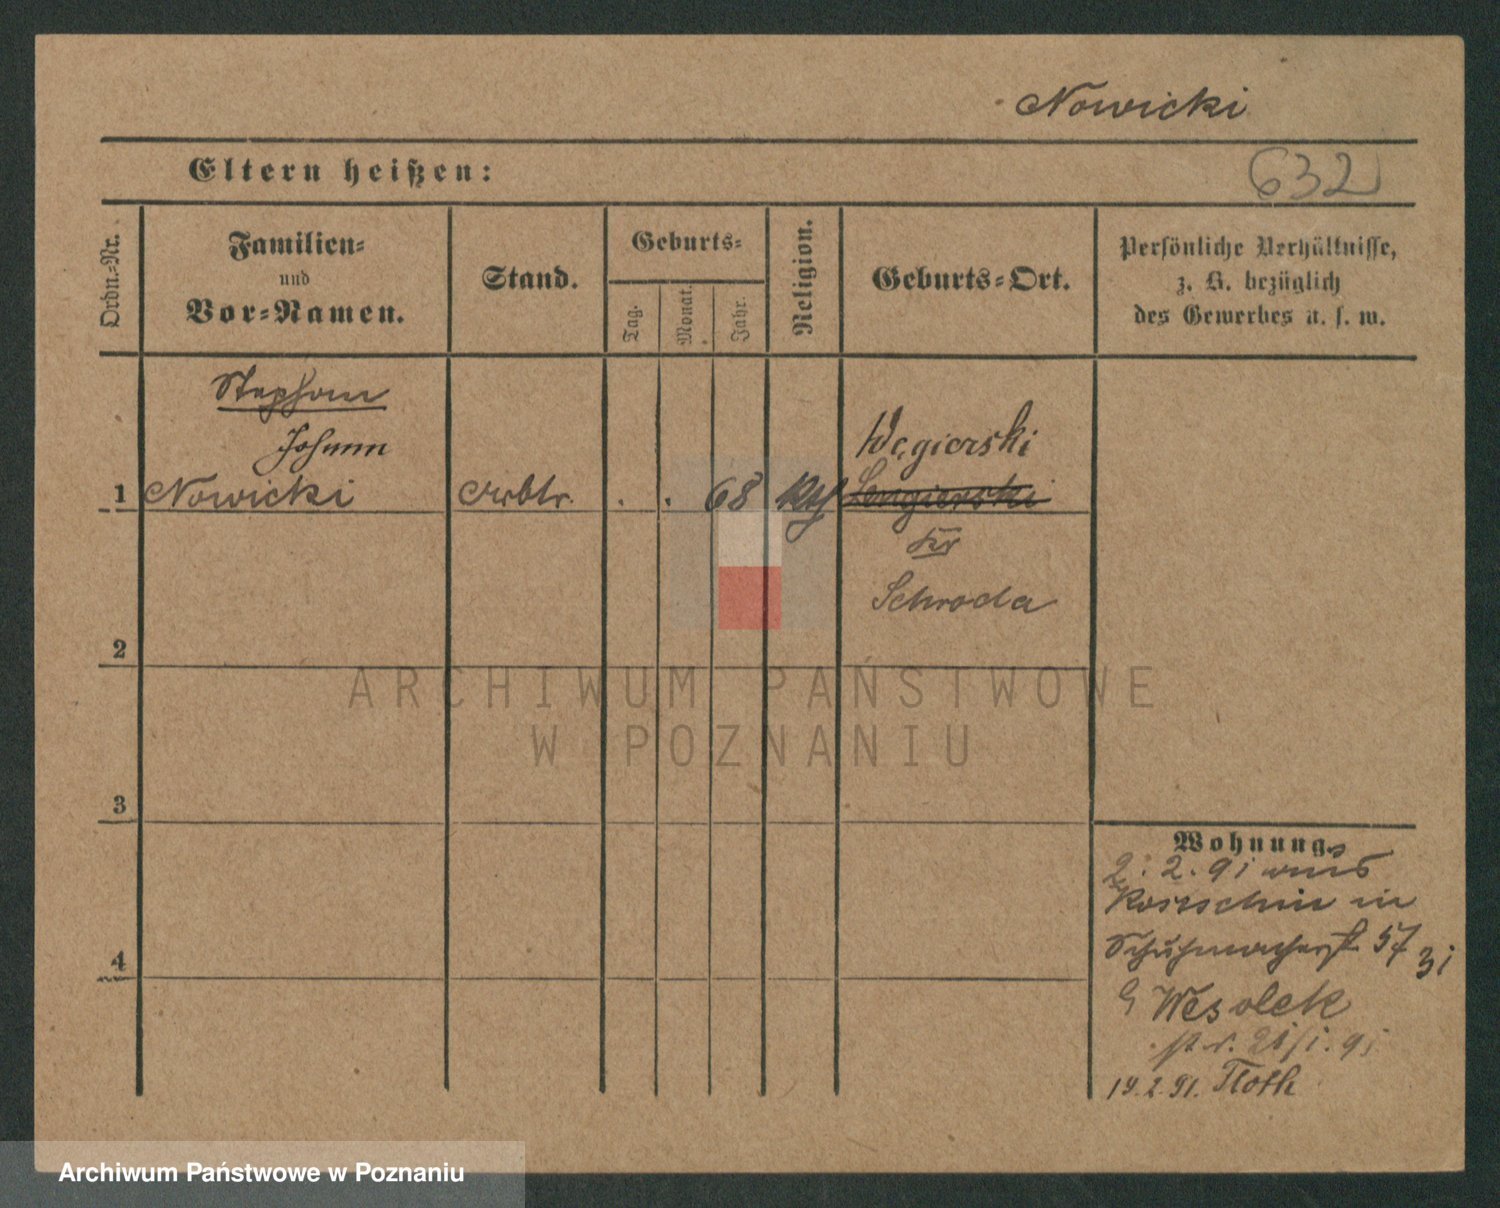 Nowicki
Eltern heißen:
632
Ordn.-Nr.
Familien-
und
Vor-Namen.
Stand.
Geburts-
Tag.
Monat.
Jahr.
Religion.
Geburts-Ort.
Persönliche Verhältnisse,
z. B. bezüglich
des Gewerbes u. s. w.
Stephan
Johann
1 Nowicki Arbtr. . . 68 Kth Węgierski
Kr
Schroda
2
3
4
Wohnung
2. 2. 91 aus
Kostschin in
Schuhmacherst 57
31
Wesolek
19.2.91.
ARCHIWUM PAŃSTWOWE
W POZNANIU
Archiwum Państwowe w Poznaniu